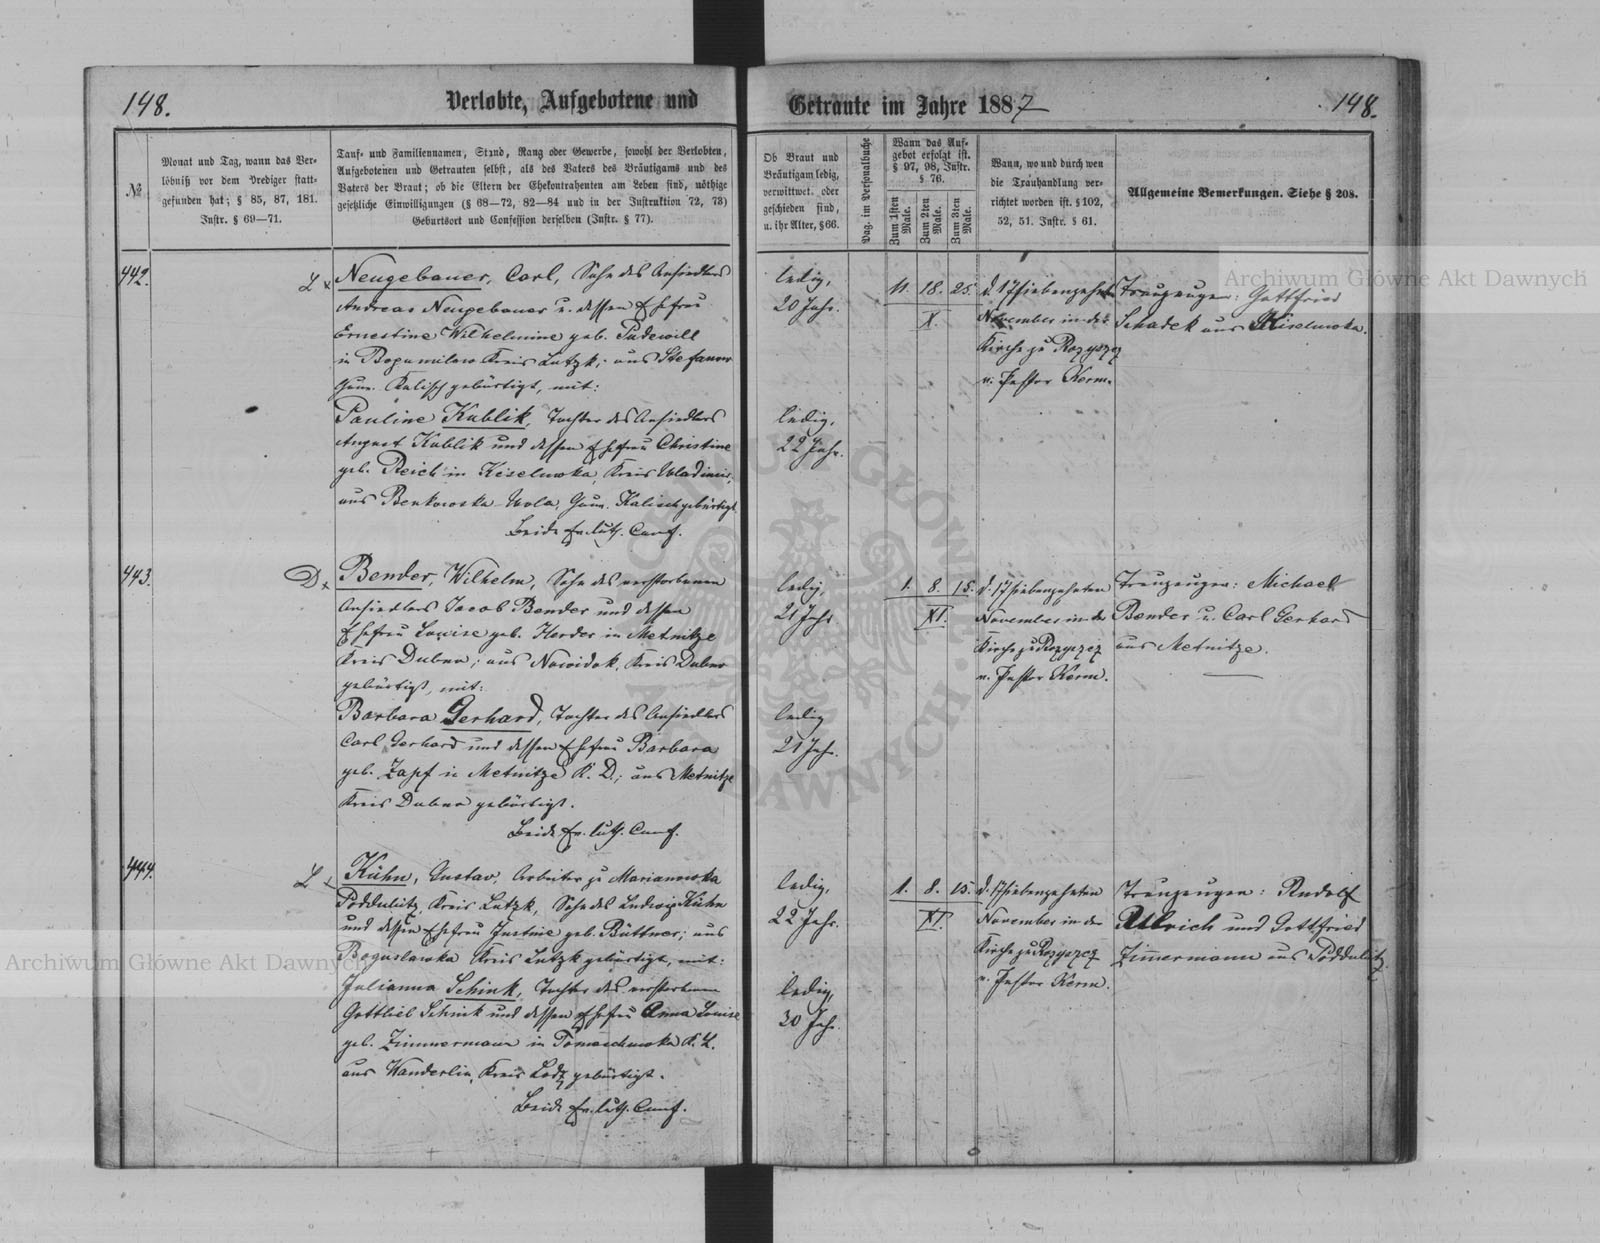 148.
Verlobte, Aufgebotene und
Getraute im Jahre 1887
148.
№
Monat und Tag, wann das Ver-
löbniß vor dem Prediger statt-
gefunden hat; § 85, 87, 181.
Instr. § 69—71.
Tauf- und Familiennamen, Stand, Rang oder Gewerbe, sowohl der Verlobten,
Aufgebotenen und Getrauten selbst, als des Vaters des Bräutigams und des
Vaters der Braut; ob die Eltern der Ehekontrahenten am Leben sind, nöthige
gesetzliche Einwilligungen (§ 68—72, 82—84 und in der Instruktion 72, 73)
Geburtsort und Confession derselben (Instr. § 77).
Ob Braut und
Bräutigam ledig,
verwittwet oder
geschieden sind,
u. ihr Alter, § 66.
Pag. im Personalbuche
Wann das Auf-
gebot erfolgt ist.
§ 97, 98, Instr.
§ 76.
Zum 1sten Male.
Zum 2ten Male.
Zum 3ten Male.
Wann, wo und durch wen
die Trauhandlung ver-
richtet worden ist. § 102,
52, 51. Instr. § 61.
Allgemeine Bemerkungen. Siehe § 208.
442.
L x
Neugebauer, Carl, Sohn des Ansiedlers
Andreas Neugebauer u. dessen Ehefrau
Ernestine Wilhelmine geb. Pudewill
in Bogumilow Kreis Lutzk; aus Stefanow
Guv. Kalisch gebürtigt, mit:
Pauline Kublik, Tochter des Ansiedlers
August Kublik und dessen Ehefrau Christine
geb. Reich in Kiselewka, Kreis Wladimir,
aus Benkowska-Wola, Guv. Kalisch gebürtigt
Beide Ev. luth. Conf.
ledig,
20 Jahr.
ledig,
22 Jahr.
11. 18. 25.
X.
d. 17 siebenzehnt
November in der
Kirche zu Rozyszcz
v. Pastor Kerm.
Trauzeugen: Gottfried
Schadek aus Kiselewka.
443.
D x
Bender, Wilhelm, Sohn des verstorbenen
Ansiedlers Jacob Bender und dessen
Ehefrau Lowise geb. Herder in Metnitze
Kreis Dubno; aus Nowidok, Kreis Dubno
gebürtigt, mit:
Barbara Gerhard, Tochter des Ansiedlers
Carl Gerhard und dessen Ehefrau Barbara
geb. Zapf in Metnitze K. D.; aus Metnitze
Kreis Dubno gebürtigt.
Beide Ev. luth. Conf.
ledig,
21 Jahr
ledig
21 Jahr.
1. 8. 15.
XI.
d. 17 siebenzehnten
November in der
Kirche zu Rozyszcz
v. Pastor Kerm.
Trauzeugen: Michael
Bender u. Carl Gerhard
aus Metnitze.
444.
L x
Kühn, Gustav, Arbeiter zu Mariannwka
Poddubitz, Kreis Lutzk, Sohn des Ludwig Kühn
und dessen Ehefrau Justine geb. Büttner; aus
Boguslawka Kreis Lutzk gebürtigt, mit:
Julianna Schink, Tochter des verstorbenen
Gottlieb Schink und dessen Ehefrau Anna Louise
geb. Zimmermann in Tomaschewka K. L.
aus Wanderlin, Kreis Lodz gebürtigt.
Beide Ev. luth. Conf.
ledig,
22 Jahr.
ledig,
30 Jahr.
1. 8. 15.
XI.
d. 17 siebenzehnten
November in der
Kirche zu Rozyszcz
v. Pastor Kerm.
Trauzeugen: Rudolf
Ullrich und Gottfried
Zimermann aus Poddubitz
Archiwum Główne Akt Dawnych
Archiwum Główne Akt Dawnych